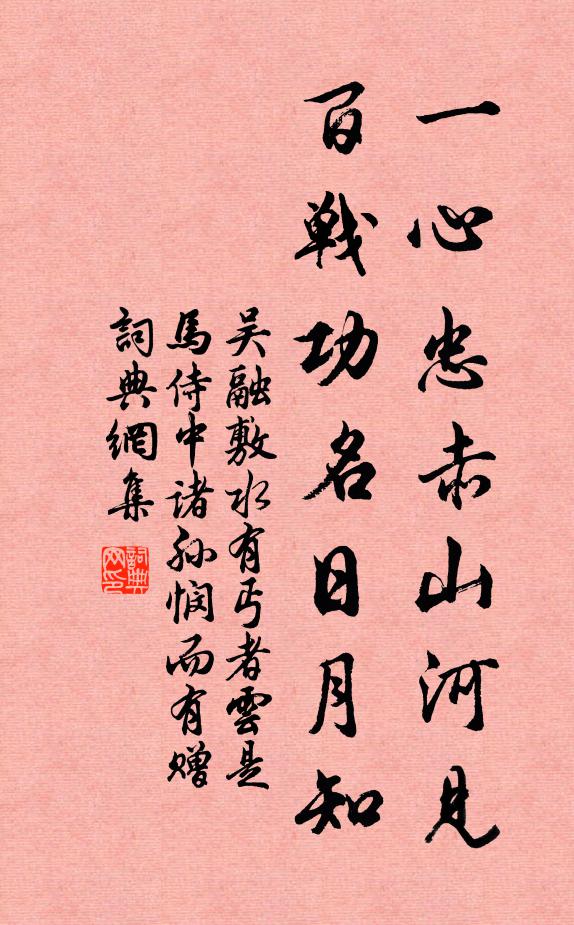 一心忠赤山河見
百戰功名日月知
吴融敷水有丐者雲是
馬侍中諸孙憫而有赠
詞典網集
詞典網印